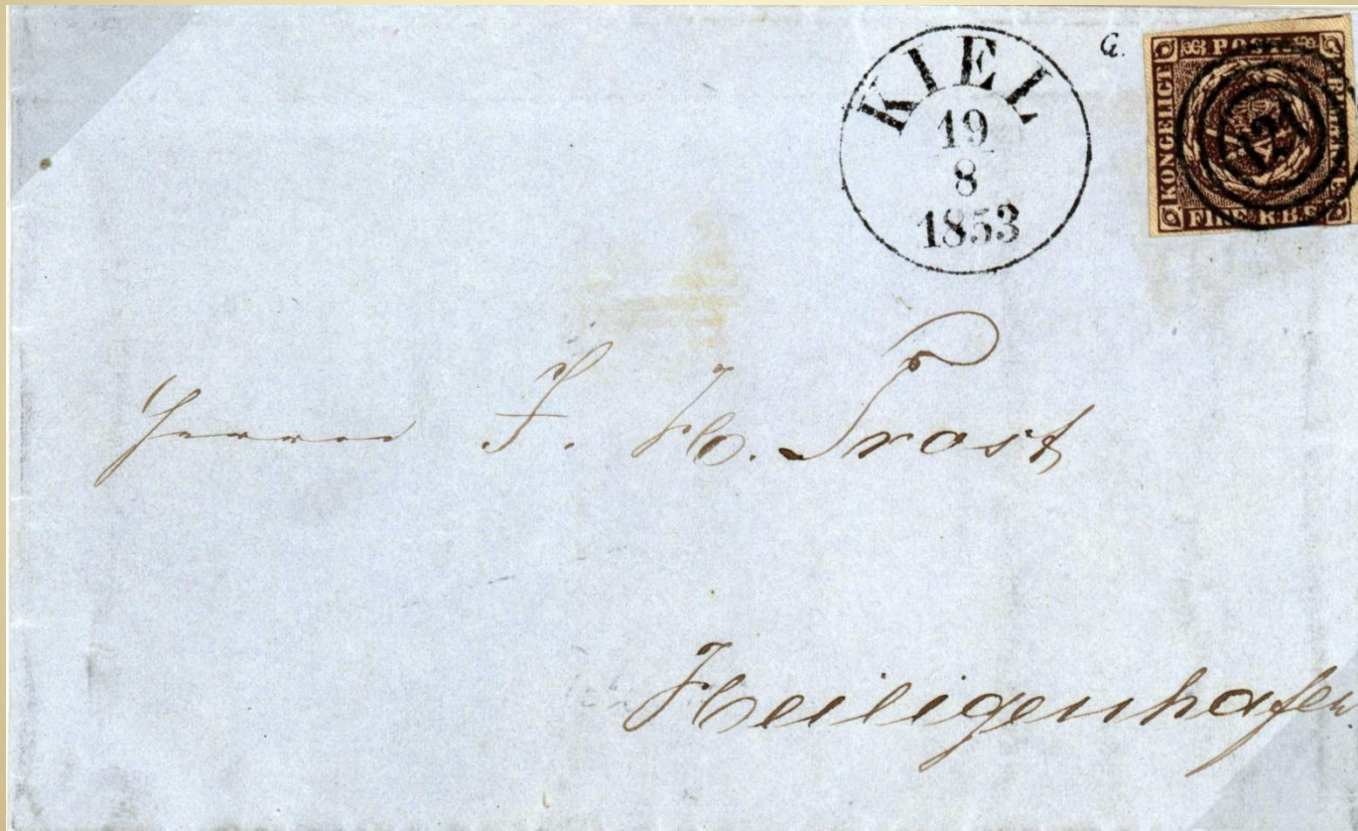 KIEL
19
8
1853
G.
KONGELIGT
POST
FRIMÆRKE
FIRE R.B.S.
121
Herrn F. H. Trost
Heiligenhafen.